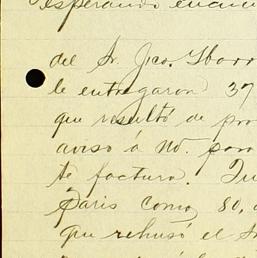 esperando
del Sr. Fco. Ibarr
le entregaron 37
que resultó de pro
aviso á Vd. para
te factura.
Paris como 80,
que rehusó el Sr